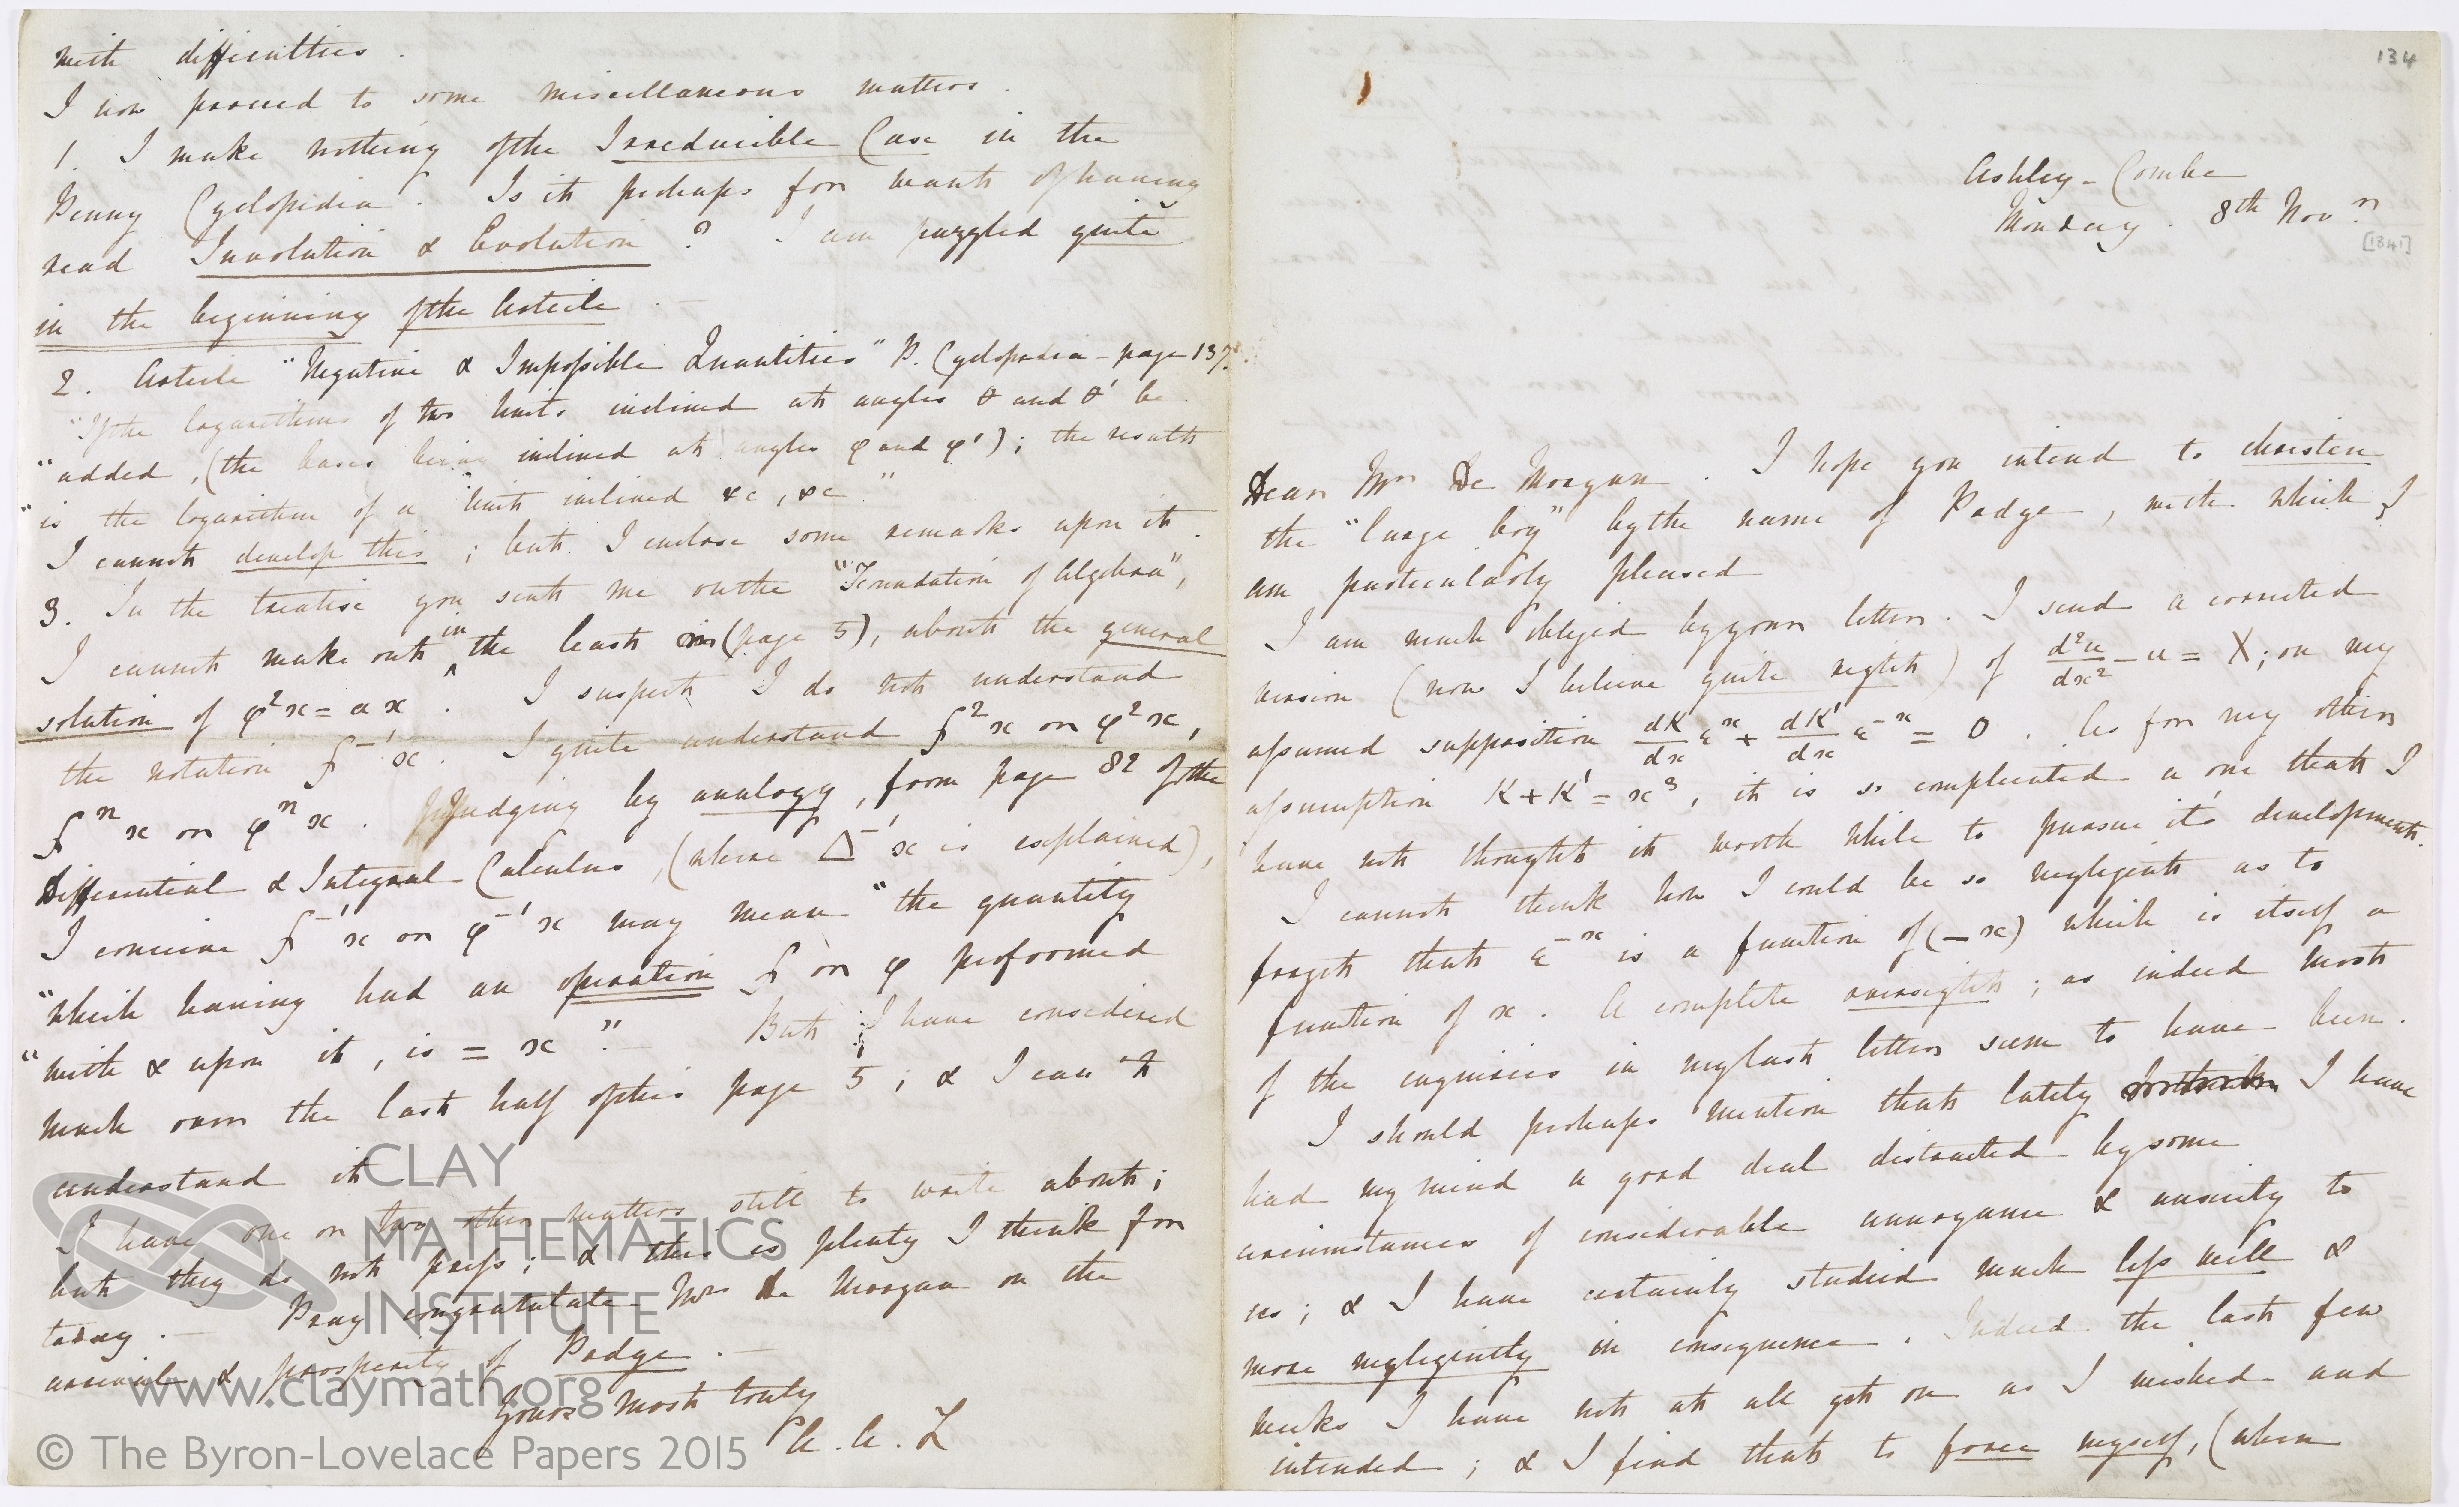 134
Ashley-Combe
Monday. 8th Novr
[1841]
Dear Mr De Morgan. I hope you intend to christen
the "large boy" by the name of Podge, with which I
am particularly pleased
I am much obliged by your letter. I send a corrected
version (now I believe quite right) of d²u/dx² - u = X; on my
assumed supposition dK/dx ε^x + dK'/dx ε^-x = 0. As for my other
assumption K + K' = x³, it is so complicated a one that I
have not thought it worth while to pursue it's development.
I cannot think how I could be so negligent as to
forget that ε^-x is a function of (-x) which is itself a
function of x. A complete oversight; as indeed most
of the enquiries in my last letter seem to have been.
I should perhaps mention that lately I have
had my mind a good deal distracted by some
circumstances of considerable annoyance & anxiety to
me; & I have certainly studied much less well &
more negligently in consequence. Indeed the last few
weeks I have not at all got on as I wished and
intended; & I find that to force myself, (when
with difficulties.
I now proceed to some miscellaneous matters.
1. I make nothing of the Irreducible Case in the
Penny Cyclopidia. Is it perhaps for want of having
read Involution & Evolution? I am puzzled quite
in the beginning of the Article.—
2. Article "Negative & Impossible Quantities" P. Cyclopædia - page 137.
"If the logarithms of two Units inclined at angles θ and θ' be
"added, (the bases being inclined at angles φ and φ'); the result
"is the logarithm of a Unit inclined &c, &c"
I cannot develop this; but I enclose some remarks upon it.
3. In the treatise you sent me on the "Foundation of Algebra",
I cannot make out in the least (page 5), about the general
solution of φ²x = αx. I suspect I do not understand
the notation f^-1 x. I quite understand f²x or φ²x,
f^n x or φ^n x. Judging by analogy, from page 82 of the
Differential & Integral Calculus, (where Δ^-1 x is explained),
I conceive f^-1 x or φ^-1 x may mean "the quantity
"which having had an operation f or φ performed
"with & upon it, is = x"?— But I have considered
much over the last half of this page 5; & I can't
understand it
I have one or two other matters still to write about;
but they do not press; & this is plenty I think for
today.— Pray congratulate Mrs De Morgan on the
arrival & prosperity of Podge.—
Yours most truly
A. A. L
CLAY
MATHEMATICS
INSTITUTE
www.claymath.org
© The Byron-Lovelace Papers 2015